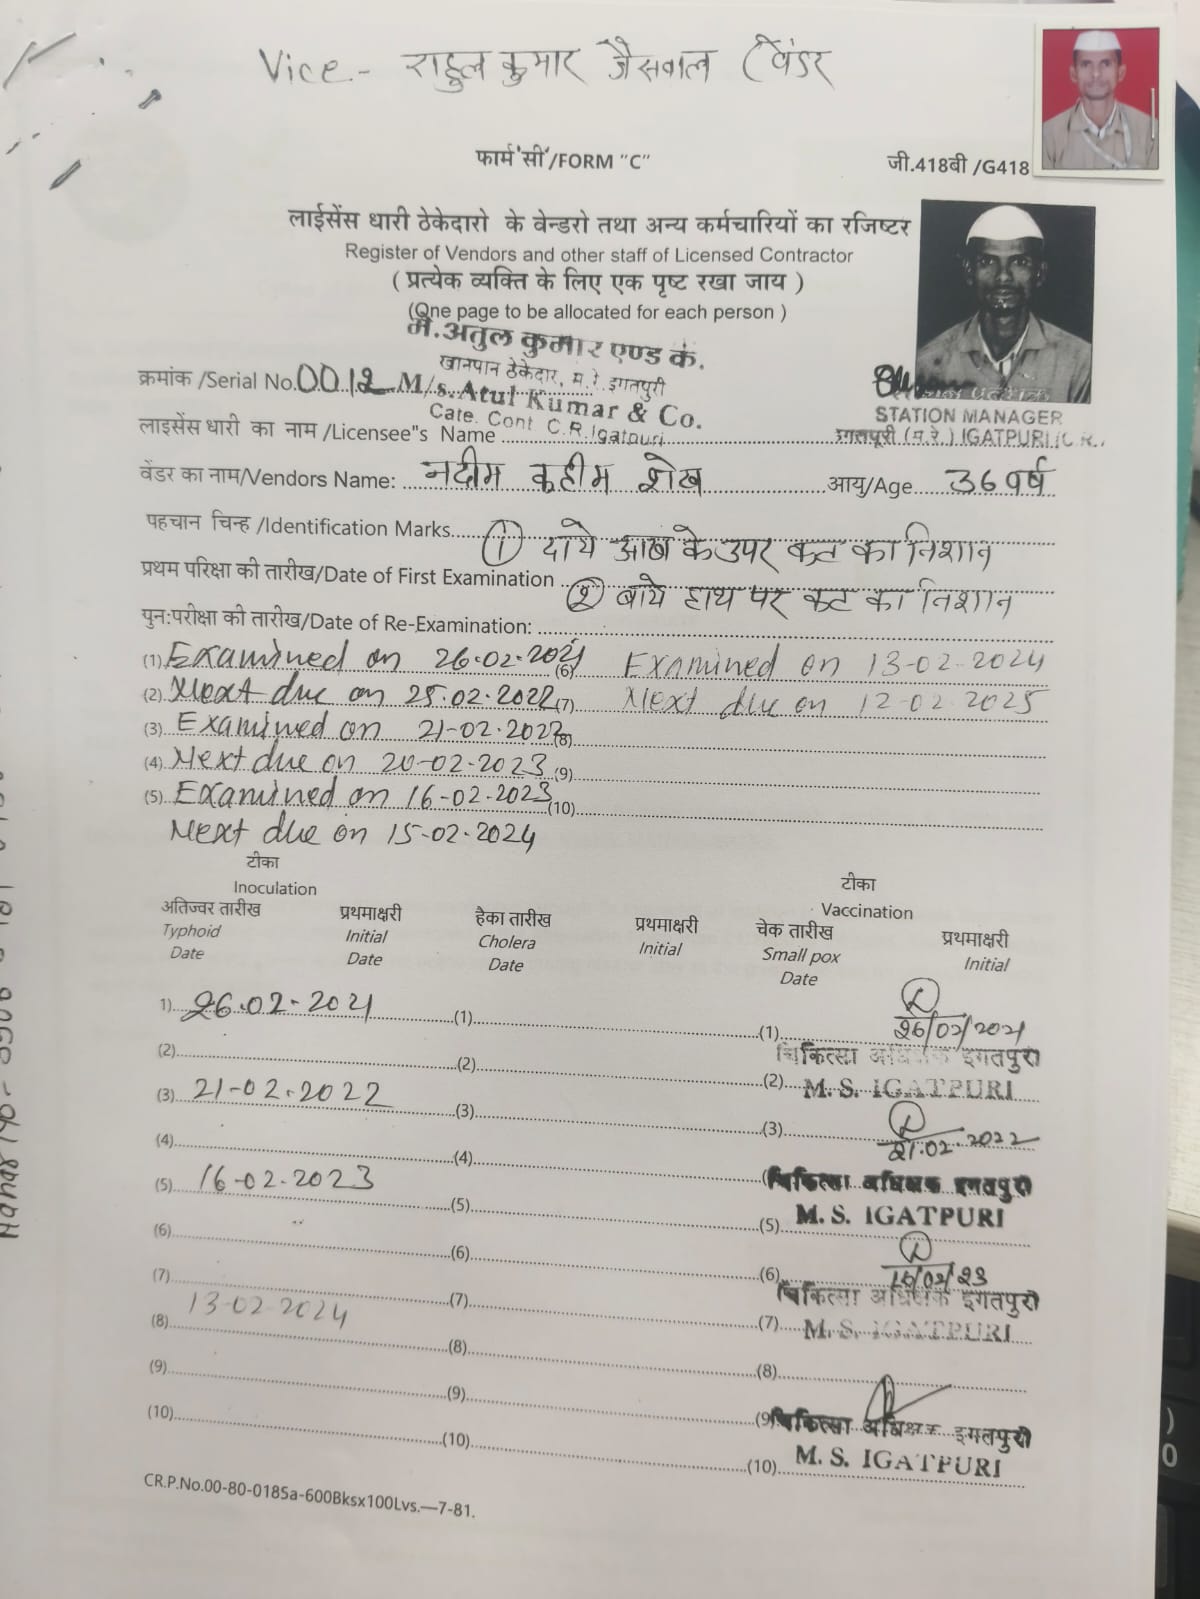 Vice - राहुल कुमार जैसवाल (वेंडर
फार्म 'सी'/FORM "C"
जी.418बी /G418
लाईसेंस धारी ठेकेदारो के वेन्डरो तथा अन्य कर्मचारियों का रजिष्टर
Register of Vendors and other staff of Licensed Contractor
( प्रत्येक व्यक्ति के लिए एक पृष्ट रखा जाय )
(One page to be allocated for each person )
मे.अतुल कुमार एण्ड कं.
खानपान ठेकेदार, म.रे. इगतपुरी
क्रमांक /Serial No. 0012 M/s. Atul Kumar & Co.
Cate. Cont. C.R. Igatpuri
STATION MANAGER
लाइसेंस धारी का नाम /Licensee"s Name
इगतपूरी (म.रे.) IGATPURI (C.R.)
वेंडर का नाम/Vendors Name: नदीम कहीम शेख आयु/Age 36 वर्ष
पहचान चिन्ह /Identification Marks. (1) दाये आख के उपर कट का निशान
प्रथम परिक्षा की तारीख/Date of First Examination (2) बाये हाथ पर कट का निशान
पुन:परीक्षा की तारीख/Date of Re-Examination:
(1) Examined on 26.02.2021 (6) Examined on 13-02-2024
(2) Next due on 25.02.2022 (7) Next due on 12-02-2025
(3) Examined on 21-02-2022 (8)
(4) Next due on 20-02-2023 (9)
(5) Examined on 16-02-2023 (10)
Next due on 15-02-2024
टीका
Inoculation
टीका
Vaccination
अतिज्वर तारीख प्रथमाक्षरी हैका तारीख प्रथमाक्षरी चेक तारीख प्रथमाक्षरी
Typhoid Initial Cholera Initial Small pox Initial
Date Date Date Date
1) 26.02-2021 (1) (1) 26/02/2021
चिकित्सा अधिक्षक इगतपुरी
(2) (2) (2) M. S. IGATPURI
(3) 21-02-2022 (3) (3) 21.02.2022
(4) (4)
चिकित्सा अधिक्षक इगतपुरी
(5) 16-02-2023 (5) (5) M. S. IGATPURI
(6) (6) (6) 16/02/23
चिकित्सा अधिक्षक इगतपुरी
(7) (7) (7) M. S. IGATPURI
13-02-2024
(8) (8) (8)
(9) (9) (9) चिकित्सा अधिक्षक इगतपुरी
(10) (10) (10) M. S. IGATPURI
CR.P.No.00-80-0185a-600Bksx100Lvs.—7-81.